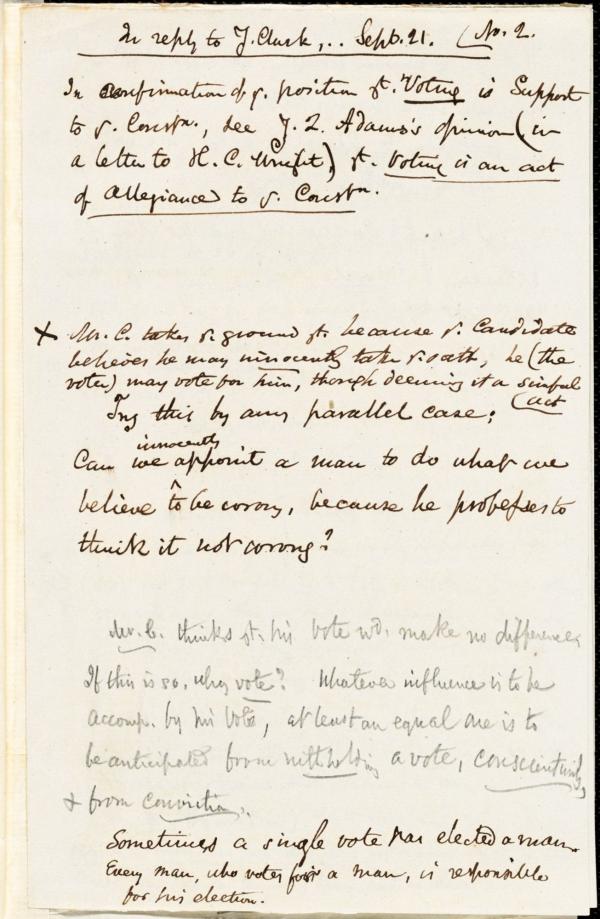 In reply to J. Clark,.. Sept. 21. (No. 2.
In confirmation of y. position yt. Voting is Support
to y. Constn., see J. Q. Adams's opinion (in
a letter to H. C. Wright), yt. Voting is an act
of Allegiance to y. Constn.
x Mr. C. takes y. ground yt. because y. Candidate
believes he may innocently take y. oath, he (the
voter) may vote for him, though deeming it a sinful
(act
Try this by any parallel case;
innocently
Can we ^ appoint a man to do what we
believe to be wrong, because he professes to
think it not wrong?
Mr. C. thinks yt. his vote wd. make no difference.
If this is so, why vote? Whatever influence is to be
accomp. by his Vote, at least an equal one is to
be anticipated from withholding a vote, conscientiously,
& from conviction.
Sometimes a single vote has elected a man.
Every man, who votes for a man, is responsible
for his election.